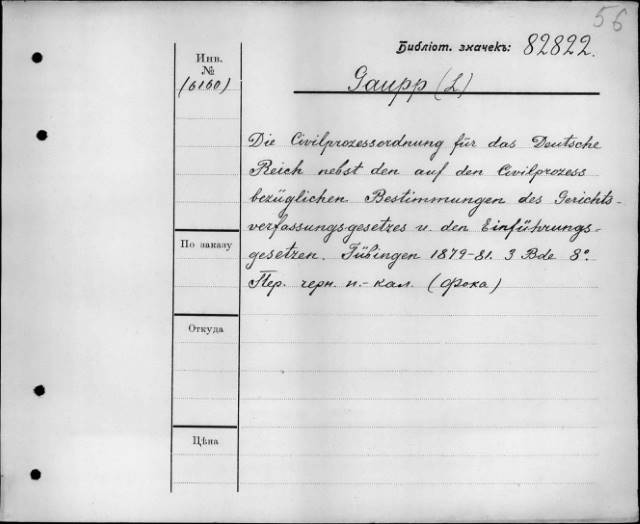 56
Библіот. значекъ: 82822.
Инв.
№
(6160)
Gaupp (L)
Die Civilprozessordnung für das Deutsche
Reich nebst den auf den Civilprozess
bezüglichen Bestimmungen des Gerichts-
verfassungsgesetzes u. den Einführungs-
gesetzen. Tübingen 1879-81. 3 Bde 8°.
Пер. черн. п.-кал. (Фока)
По заказу
Откуда
Цѣна